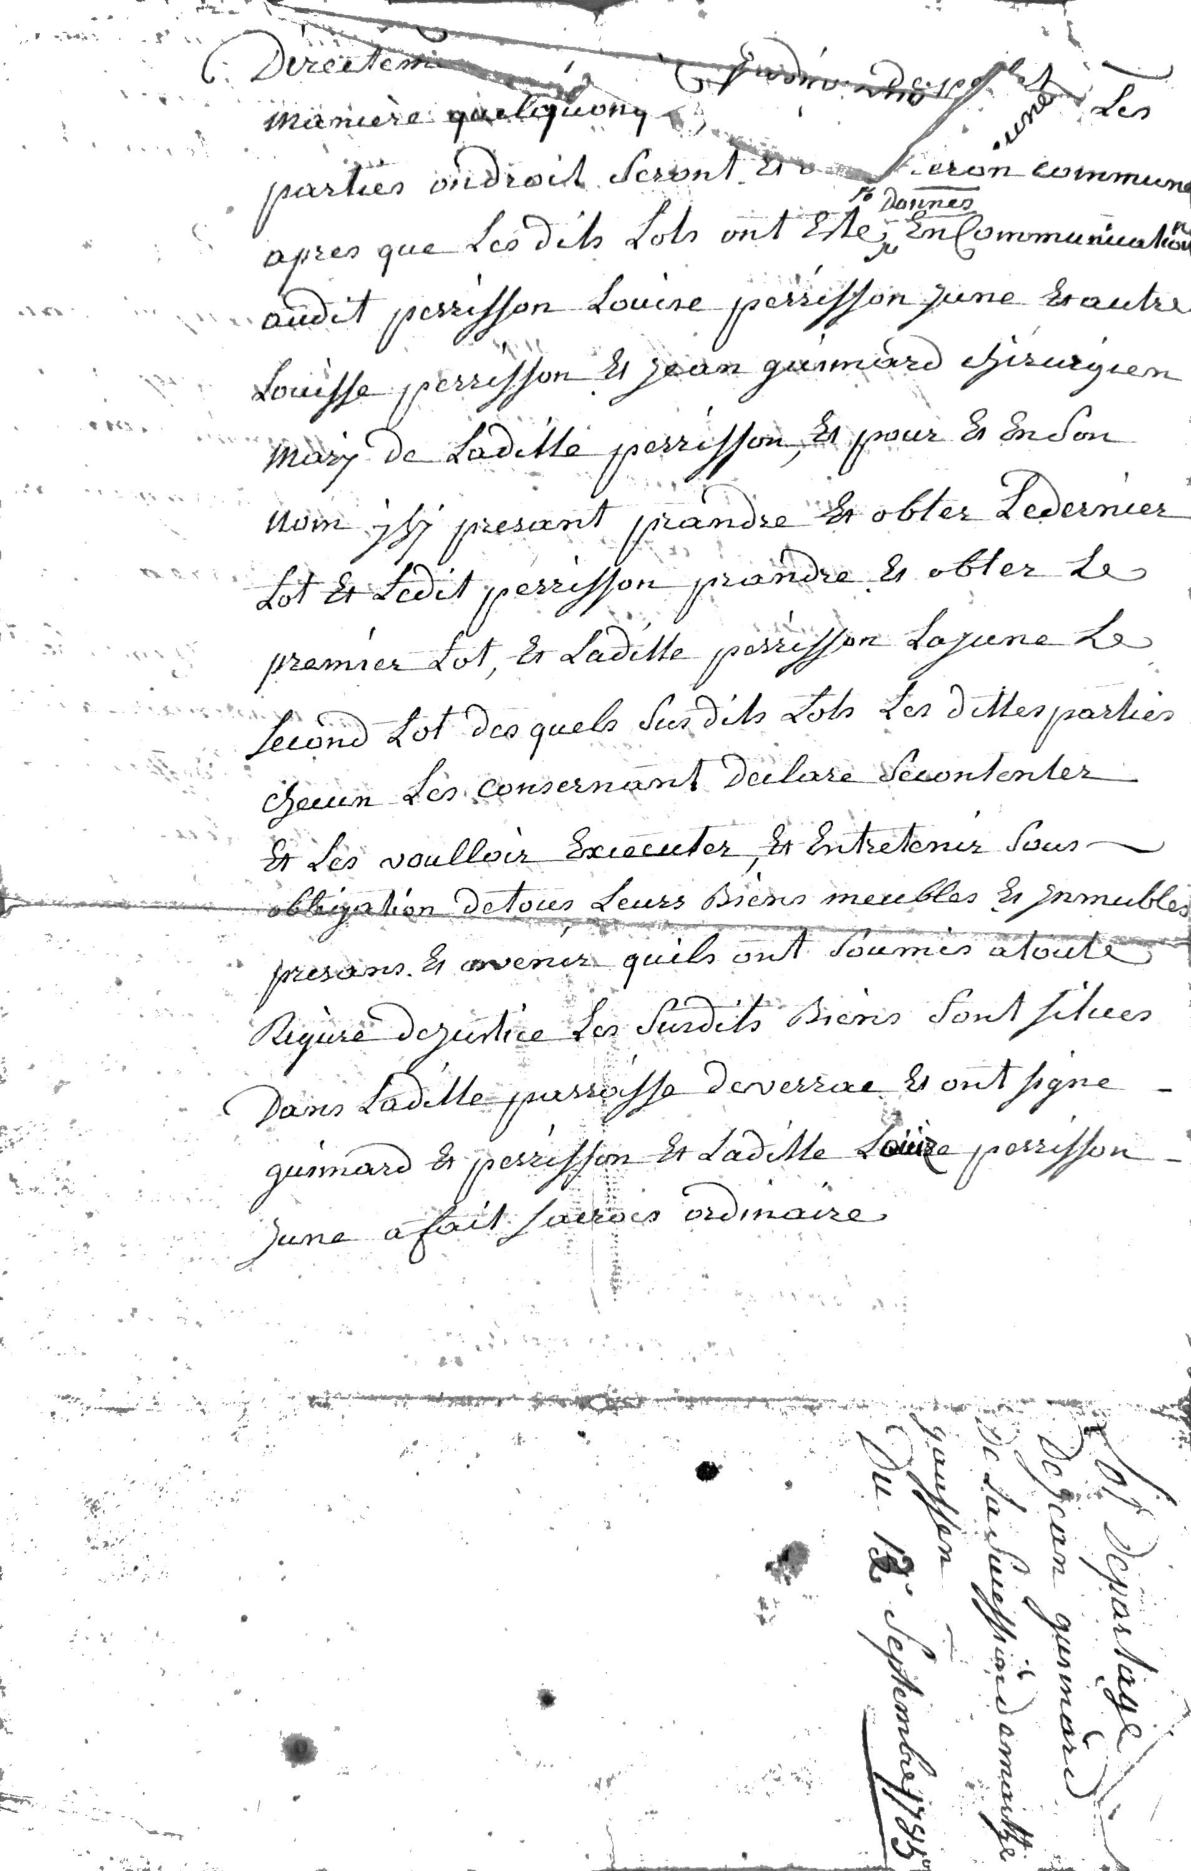 Directem
maniere quelquonq Les
parties ondroit Seront Et eron commune
Donnes
apres que Les dits Lots ont Este En Communication
audit perrisson Louise perrisson june Et autre
Louisse perrisson Et jean guimard chirurgien
mary de Laditte perrisson, Et pour Et En Son
nom ysy presant prandre Et obter Le dernier
Lot Et Ledit perrisson prandre Et obter Le
premier Lot, Et Laditte perrisson La june Le
second Lot des quels Sus dits Lots Les dittes parties
checun Les consernant declare Se contenter
Et Les voulloir Executer, Et Entretenir Sous
obligation de tous Leurs Biens meubles Et jnmubles
presans Et avenir quils ont Soumis a toute
Rigure de justice Les Susdits Biens Sont situes
Dans Laditte parroisse deverrac Et ont signe
guimard Et perrisson Et Laditte Louize perrisson
june a fait sa crois ordinaire
Lot De partage
De jean guimard
De La Suession de marthe
gausson
Du 12e Septembre 1785